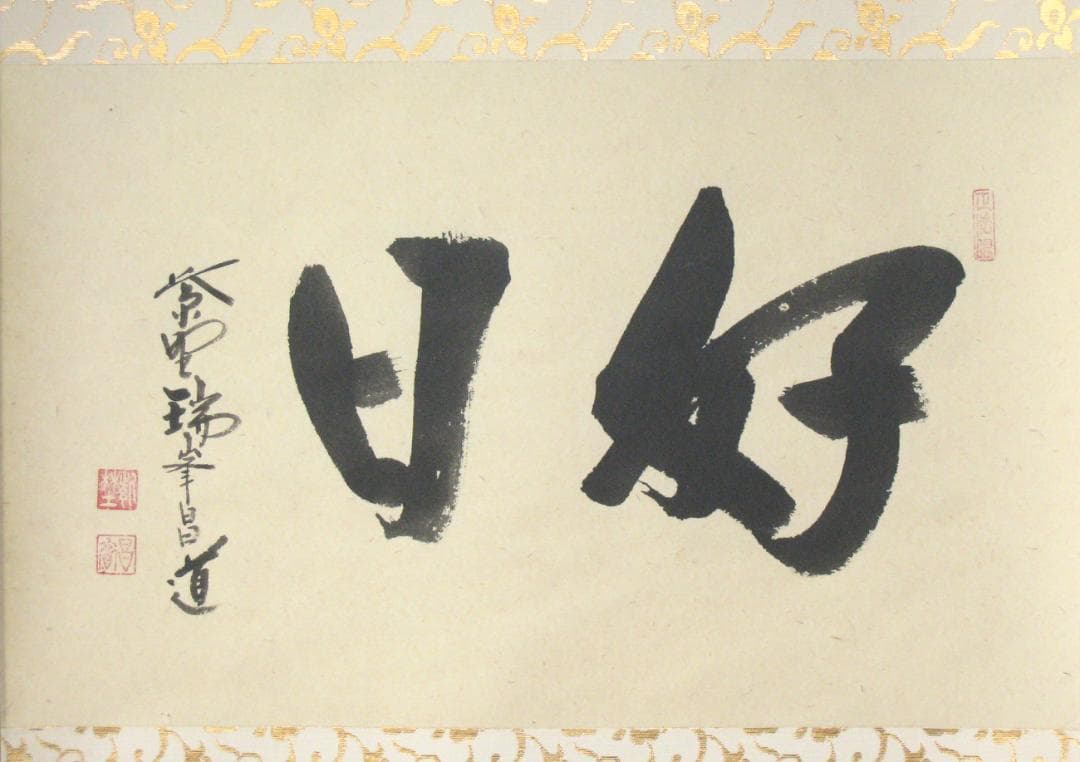 好日
紫野瑞峯昌道